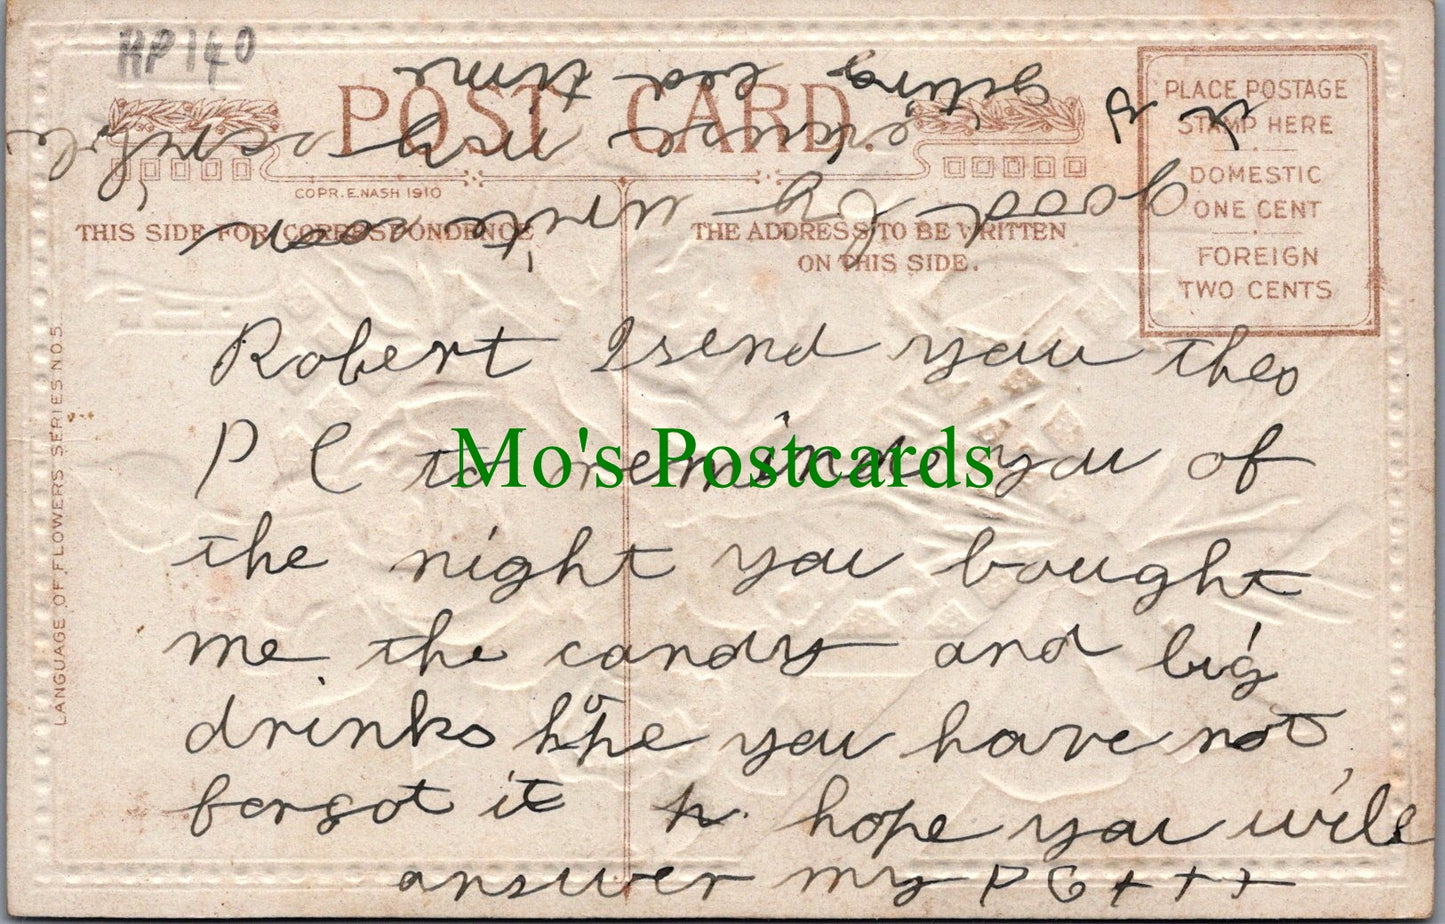 HP 140
POST CARD.
COPR. E. NASH 1910
THIS SIDE FOR CORRESPONDENCE
THE ADDRESS TO BE WRITTEN
ON THIS SIDE.
PLACE POSTAGE
STAMP HERE
DOMESTIC
ONE CENT
FOREIGN
TWO CENTS
LANGUAGE OF FLOWERS SERIES NO. 5.
Robert I send you theo
P C to remind you of
the night you bought
me the candy and big
drinks hope you have not
forgot it hope you will
answer my PC + + +
good by write soon
time
Mo's Postcards